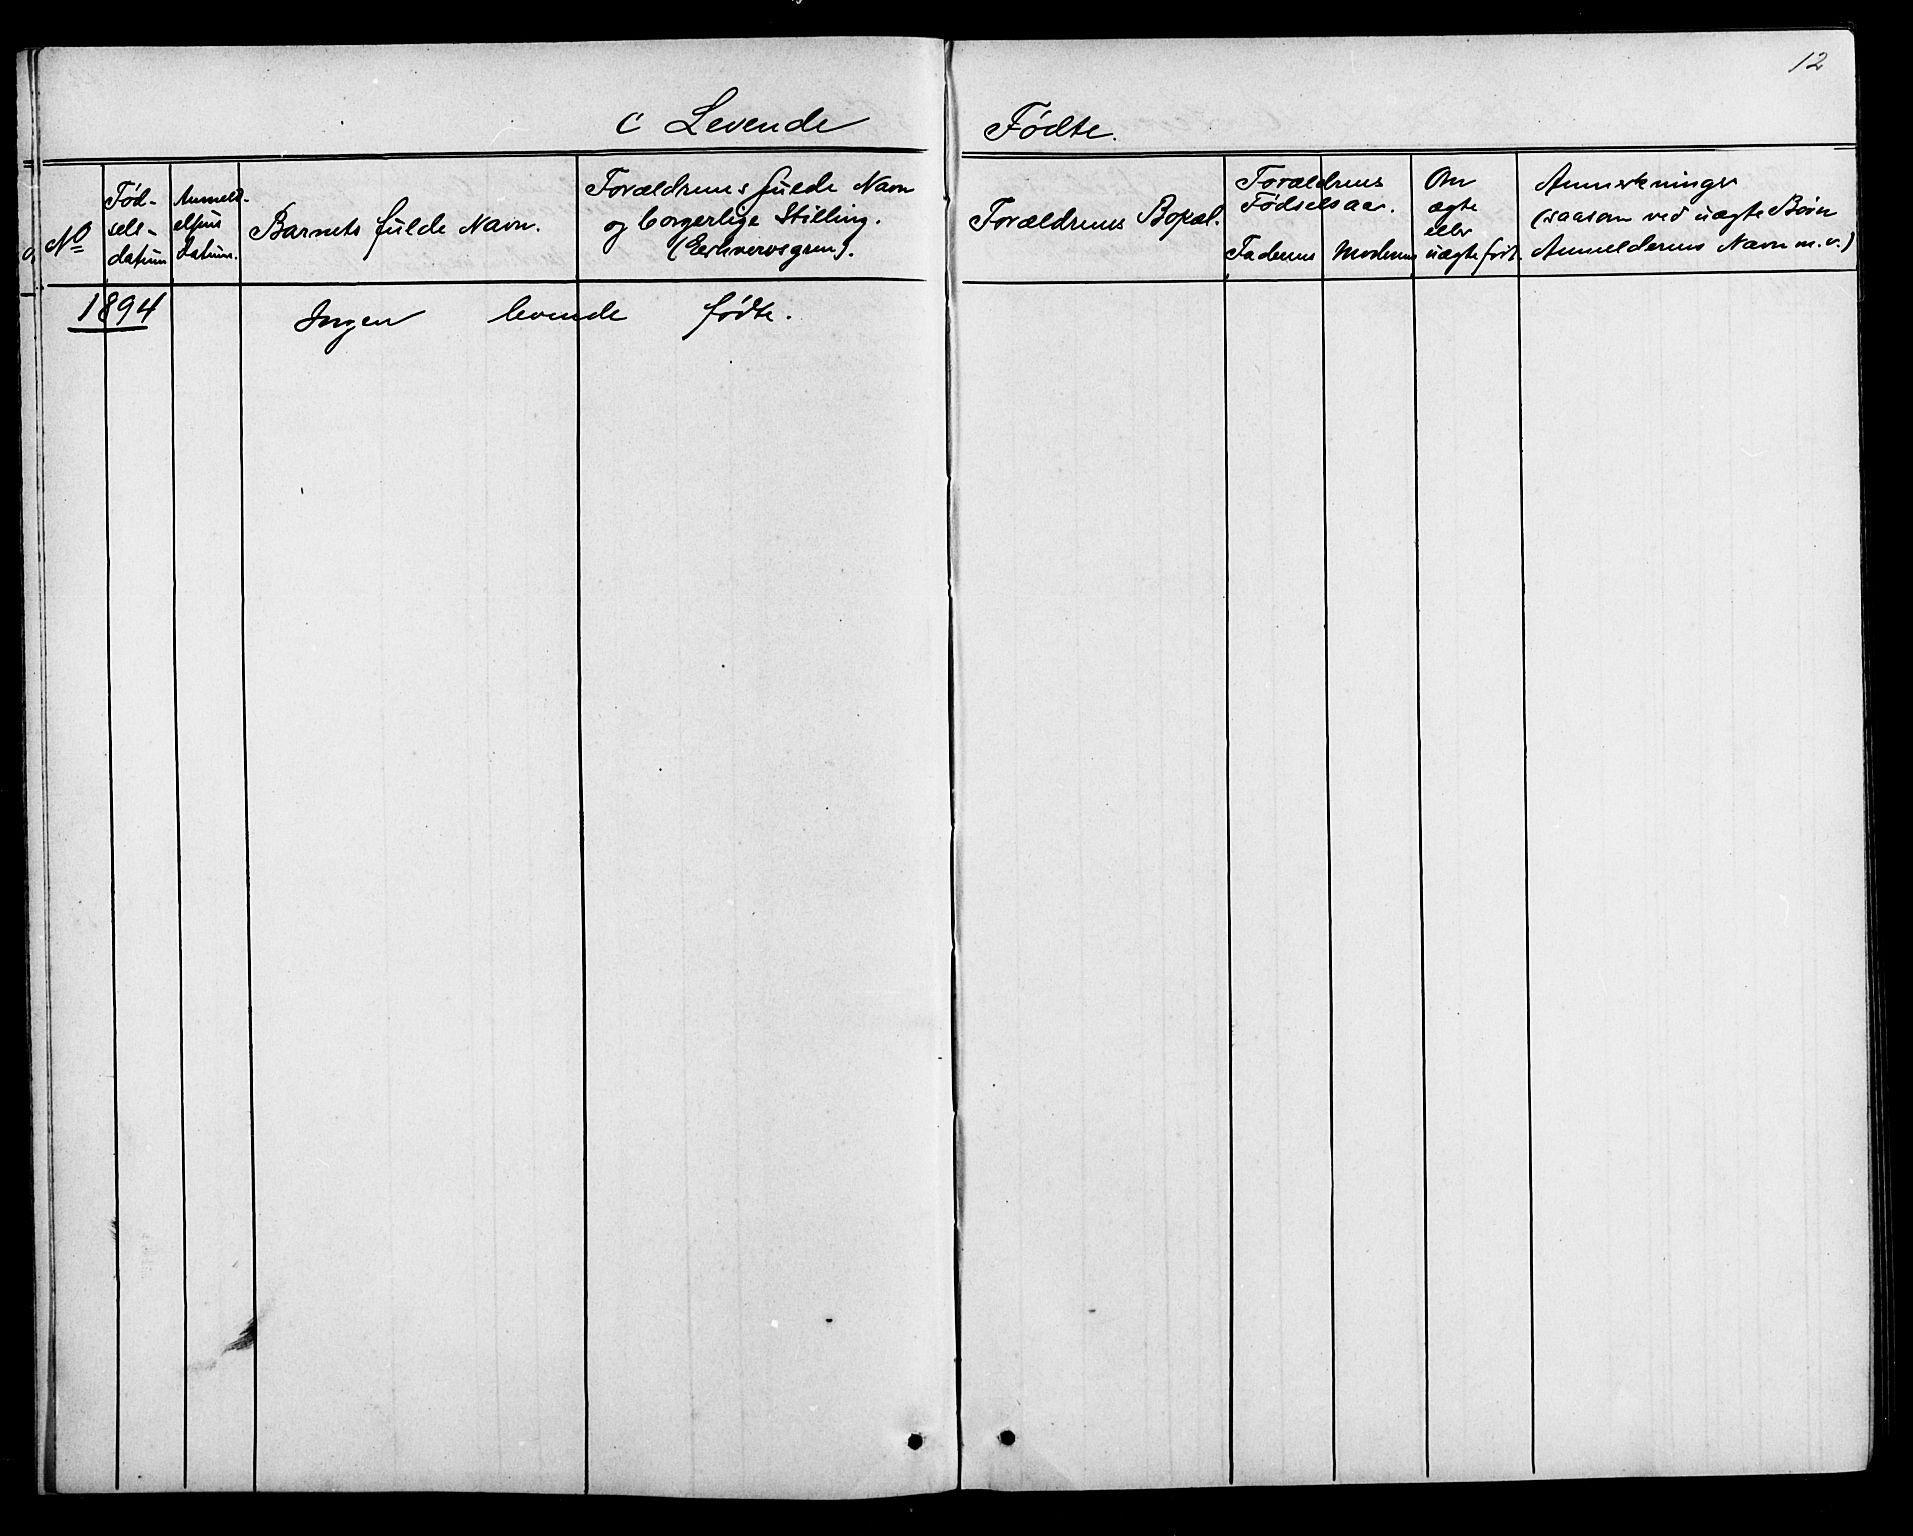 12
c Levende Fødte.
No
Fød-
sels-
datum
Anmeld-
elsens
datum.
Barnets fulde Navn.
Forældrenes fulde Navn
og borgerlige Stilling.
(Erhvervsgren).
Forældrenes Bopæl.
Forældrenes
Fødselsaar.
Faderens
Moderens
Om
ægte
eller
uægte født.
Anmerkninger
(saasom ved uægte Børn
Anmelderens Navn m. v.)
1894
Ingen levende fødte.